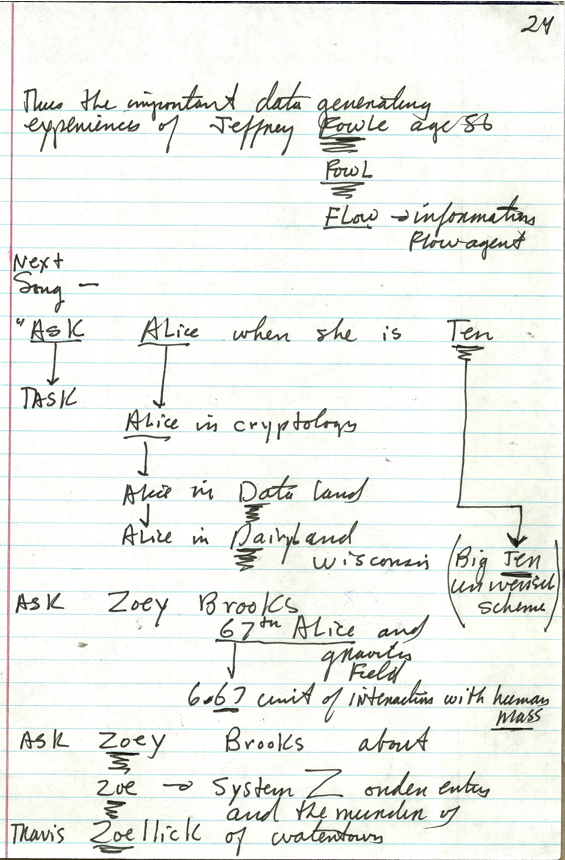 24
Thus the important data generating
experiences of Jeffrey Fowle age 56
FowL
FLow → information
Flow agent
Next
Song —
"Ask ALice when she is Ten
TASK
ALice in cryptology
Alice in Data land
Alice in Dairyland
Wisconsin
(Big Ten
universal
scheme)
Ask Zoey Brooks
67th Alice and
gravity
Field
6.67 unit of interaction with human
mass
Ask Zoey Brooks about
Zoe → System Z order entry
and the murder of
Travis Zoellick of watertown